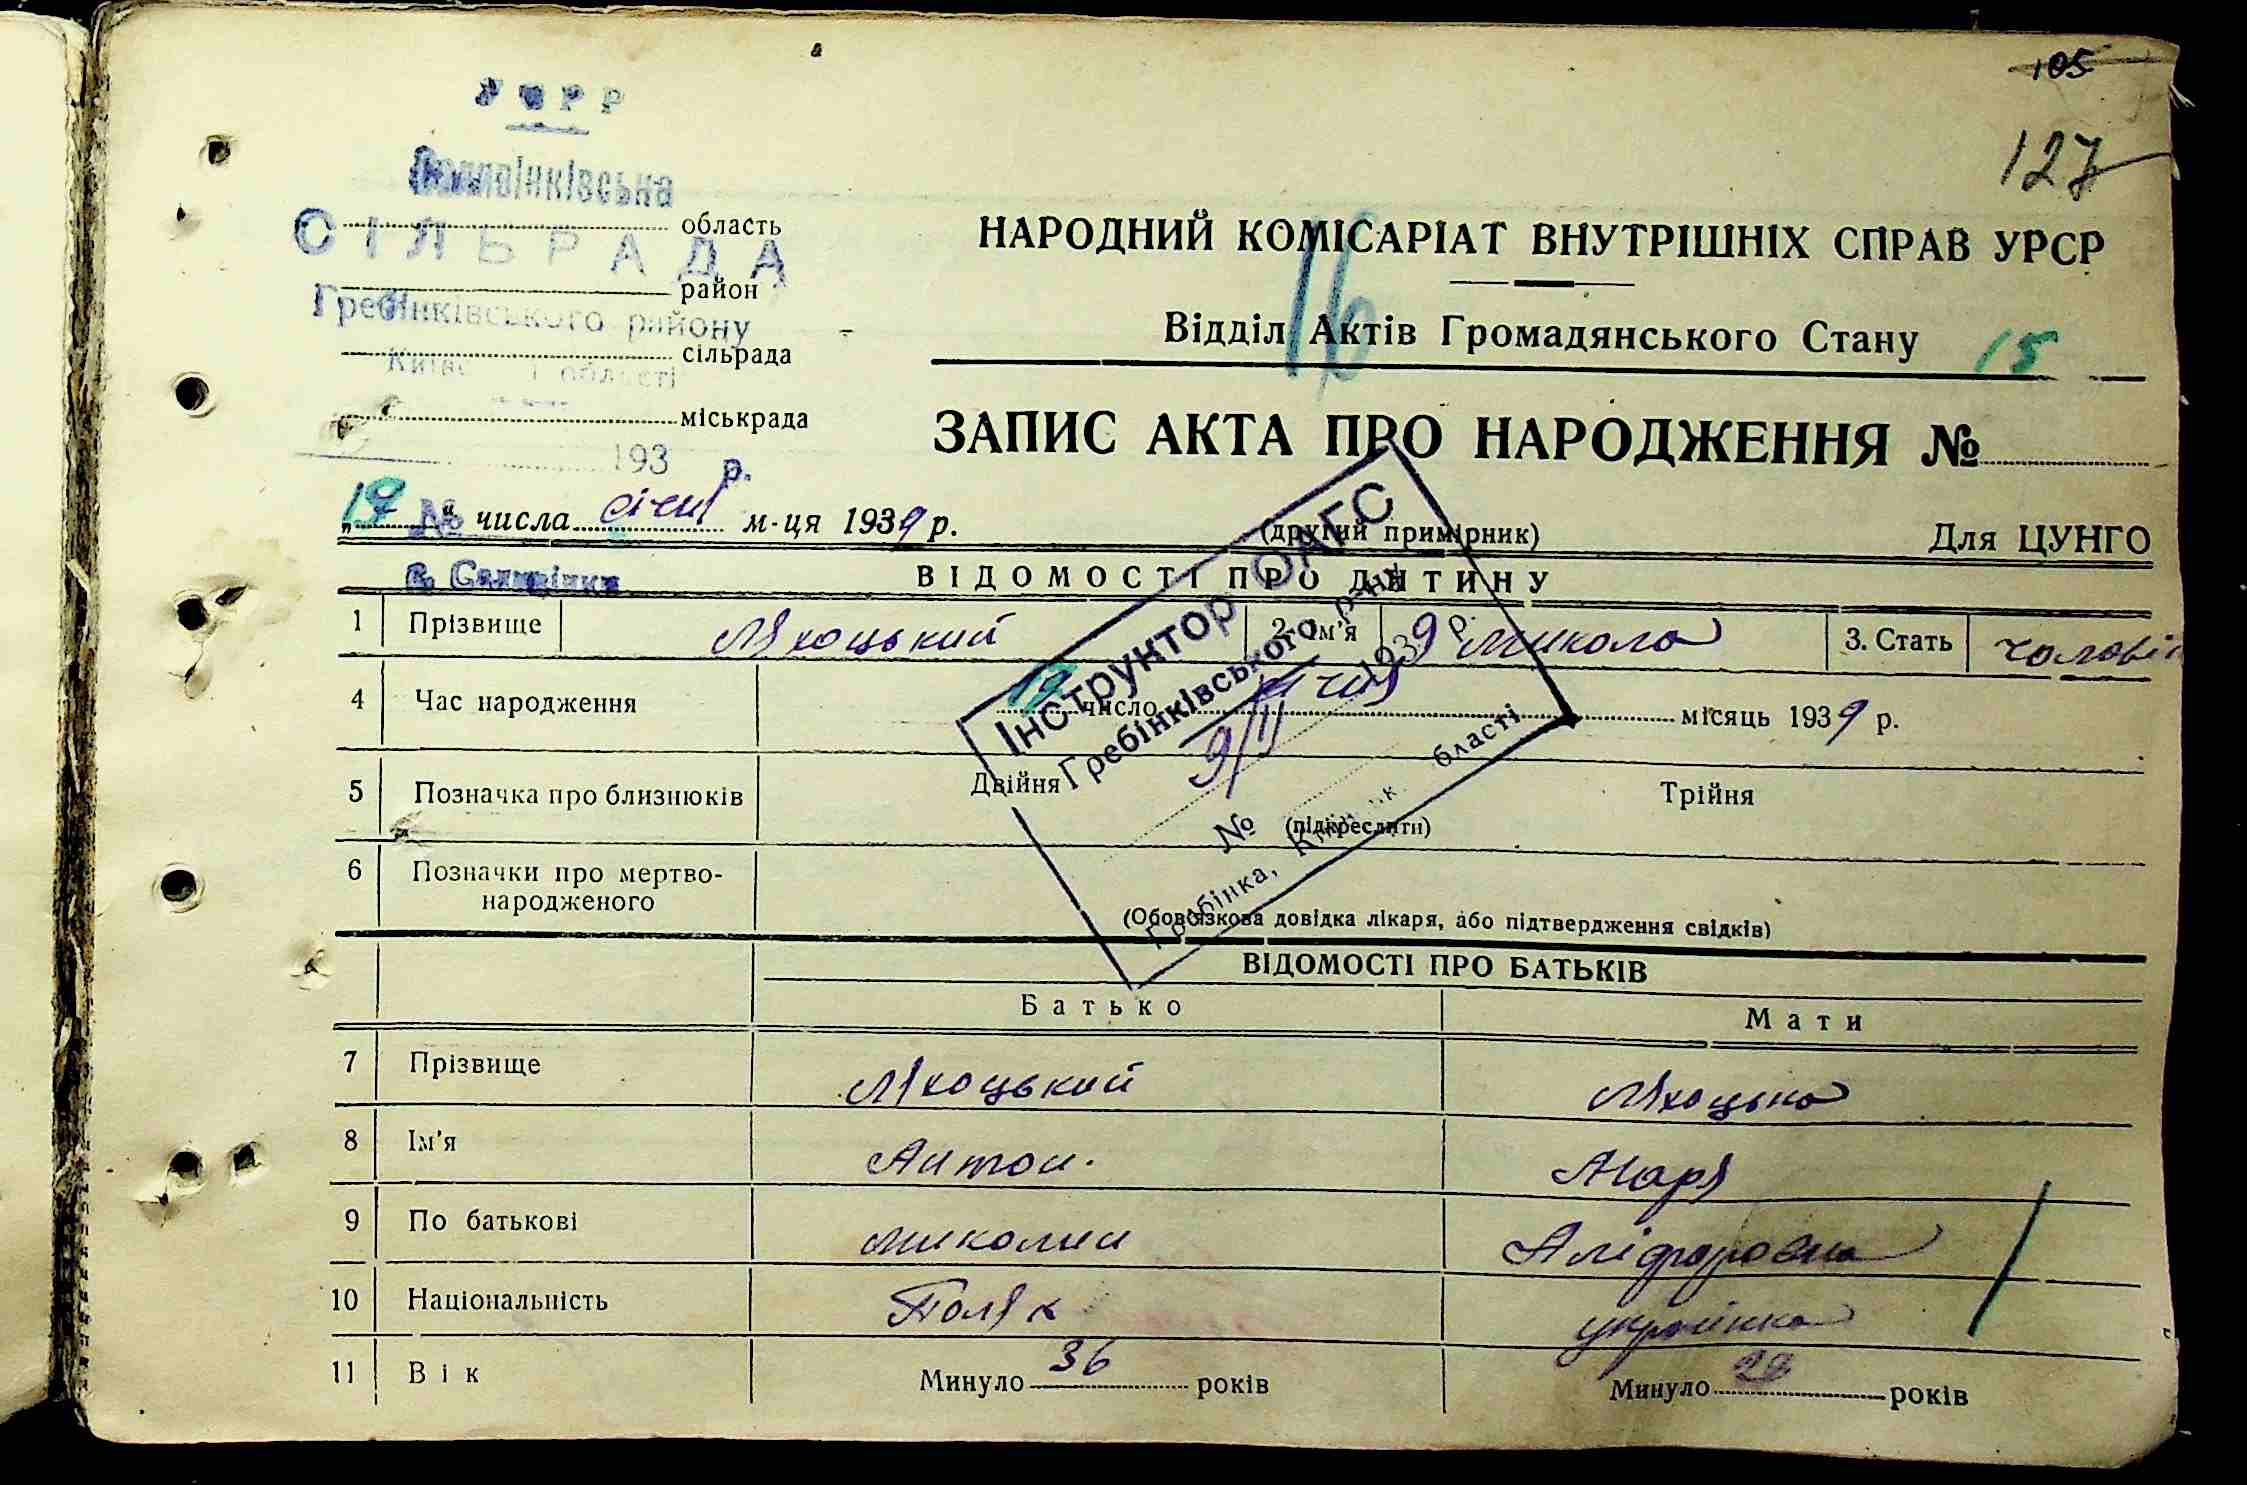 105
127
УСРР
Саливінківська
область
СІЛЬРАДА
район
Гребінківського району
сільрада
області
міськрада
193 р.
НАРОДНИЙ КОМІСАРІАТ ВНУТРІШНІХ СПРАВ УРСР
16
Відділ Актів Громадянського Стану 15
ЗАПИС АКТА ПРО НАРОДЖЕННЯ №
„17“ числа січня м-ця 1939 р.
№
с. Саливінки
(другий примірник)
Для ЦУНГО
ВІДОМОСТІ ПРО ДИТИНУ
1 Прізвище Ляхоцький 2. Ім'я Микола 3. Стать
4 Час народження 17 число січня місяць 1939 р.
Інструктор ОАГС
Гребінківського р-ну
9/II 1939 р.
№
Гребінка, області
5 Позначка про близнюків Двійня Трійня
(підкреслити)
6 Позначки про мертво-
народженого
(Обов'язкова довідка лікаря, або підтвердження свідків)
ВІДОМОСТІ ПРО БАТЬКІВ
Батько Мати
7 Прізвище Ляхоцький Ляхоцька
8 Ім'я Антон. Маря
9 По батькові
10 Національність Поляк українка
11 Вік Минуло 36 років Минуло років